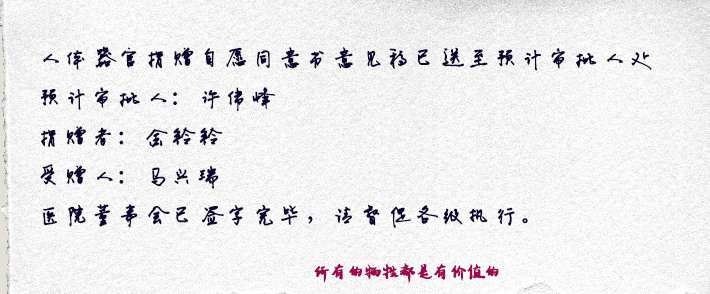 人体器官捐赠自愿同意书意见稿已送至预计审批人处
预计审批人：许伟峰
捐赠者：金铃铃
受赠人：马兴瑞
医院董事会已签字完毕，请督促各级执行。
所有的牺牲都是有价值的